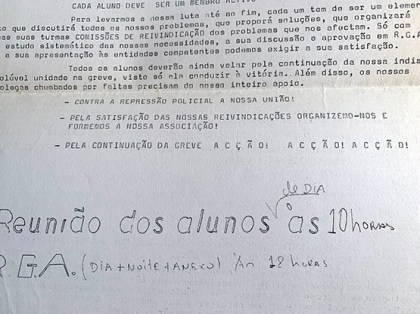 CADA ALUNO DEVE SER UM MEMBRO ACTIVO
Para levarmos a nossa luta até ao fim, cada um tem de ser um elemen
to que discutirá todos os nossos problemas, que proporá soluções, que organizará
nas suas turmas COMISSÕES DE REIVINDICAÇÃO dos problemas que nos afectam. Só com
estudo sistemático das nossas necessidades, a sua discussão e aprovação em R.G.A
a sua apresentação às entidades competentes podemos exigir a sua satisfação.
Todos os alunos deverão ainda velar pela continuação da nossa indis
solúvel unidade na greve, visto só ela conduzir à vitória. Além disso, os nossos
colegas chumbados por faltas precisam do nosso inteiro apoio.
- CONTRA A REPRESSÃO POLICIAL A NOSSA UNIÃO!
- PELA SATISFAÇÃO DAS NOSSAS REIVINDICAÇÕES ORGANIZEMO-NOS E
FORMEMOS A NOSSA ASSOCIAÇÃO!
- PELA CONTINUAÇÃO DA GREVE A C Ç Ã O ! A C Ç Ã O ! A C Ç Ã O !
de DIA
Reunião dos alunos às 10 horas
R.G.A. (DIA+NOITE+ANEXO) às 12 horas